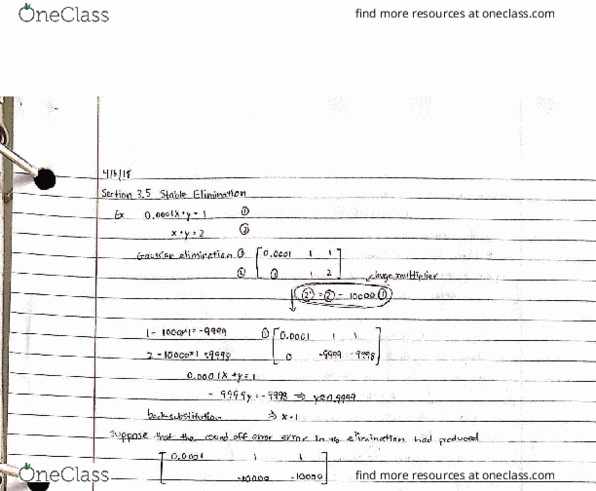 OneClass find more resources at oneclass.com
4/13/18
Section 3.5 Stable Elimination
Ex 0.0001x+y=1 ①
x+y=2 ②
Gaussian elimination ① [0.0001 1 1
② ① 1 2] huge multiplier
②' = ② - 10000 ①
1-10000*1=-9999 ① [0.0001 1 1
2-10000*1=-9998 0 -9999 -9998]
0.0001x+y=1
-9999y=-9998 ⇒ y≈0.9999
back substitution ⇒ x=1
Suppose that the round off error error in the elimination had produced
[0.0001 1 1
-10000 -10000]
OneClass find more resources at oneclass.com